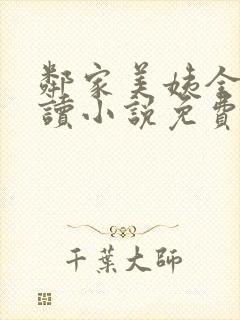 鄰家美姨全
讀小説免費
千葉大師